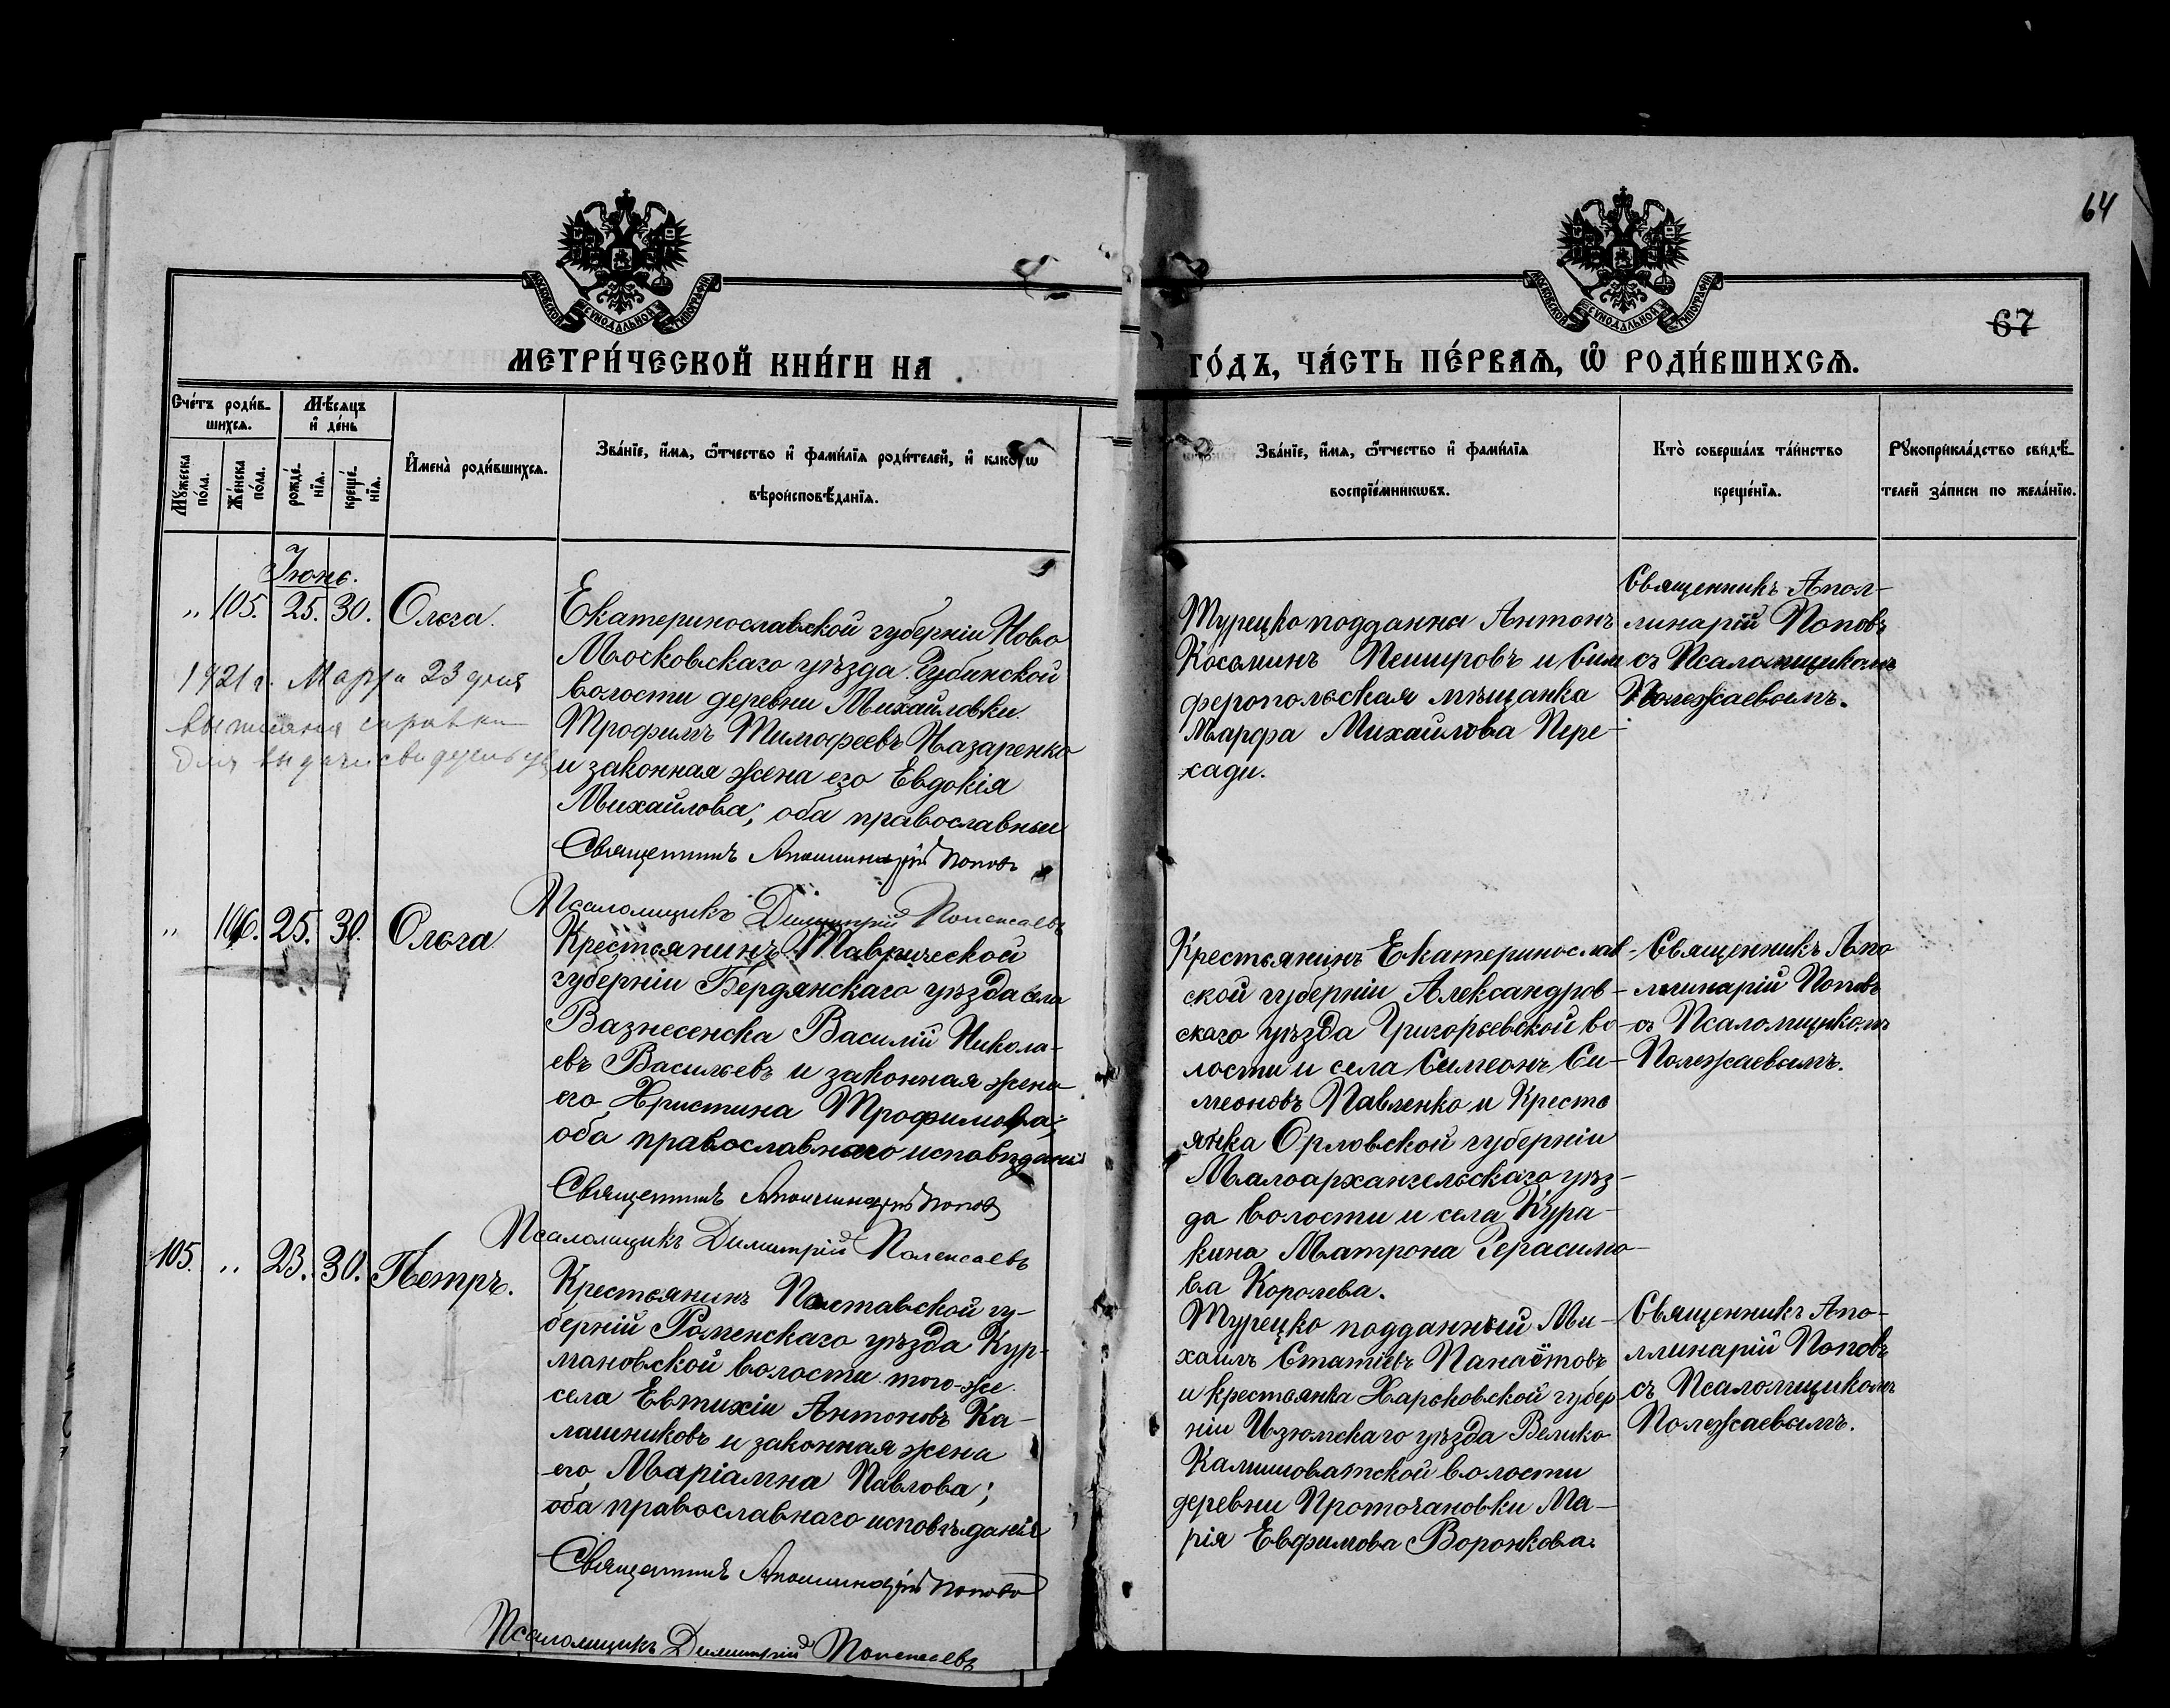 64
67
МОСКОВСКОЙ СѴНОДАЛЬНОЙ ТИПОГРАФІИ
МОСКОВСКОЙ СѴНОДАЛЬНОЙ ТИПОГРАФІИ
МЕТРИ́ЧЕСКОЙ КНИ́ГИ НА
ГО́ДЪ, ЧА́СТЬ ПЕ́РВАЯ, Ѡ҆ РОДИ́ВШИХСЯ.
Сче́тъ роди́в-
шихся.
Мѣ́сяцъ
и҆ де́нь
Мꙋ́жеска
по́ла.
Же́нска
по́ла.
рожде́-
нїя.
креще́-
нїя.
И҆мена̀ роди́вшихся.
Зва́нїе, и҆́мя, ѻ҆́тчество и҆ фами́лїя роди́телей, и҆ како́гѡ
вѣроисповѣ́данїя.
Зва́нїе, и҆́мя, ѻ҆́тчество и҆ фами́лїя
воспрїе́мникѡвъ.
Кто̀ соверша́лъ та́инство
креще́нїя.
Рꙋкоприкла́дство свидѣ́-
телей за́писи по жела́нїю.
Іюнь.
„ 105. 25. 30. Ольга.
Екатеринославской губерніи Ново
Московскаго уѣзда Губинской
волости деревни Михайловки
Трофимъ Тимофеевъ Назаренко
и законная жена его Евдокія
Михайлова; оба православные
Священникъ Аполлинарій Поповъ
Псаломщикъ Димитрій Полежаевъ
1921 г. Марта 23 дня
для выдачи
Турецко подданна Антонъ
Косьминъ Пешировъ и Сим
феропольская мѣщанка
Марфа Михайлова Пере-
хади.
Священникъ Апол-
линарій Поповъ
съ Псаломщикомъ
Полежаевымъ.
„ 106. 25. 30. Ольга
Крестьянинъ Таврической
губерніи Бердянскаго уѣзда села
Вазнесенска Василій Никола-
евъ Васильевъ и законная жена
его Христина Трофимова;
оба православнаго исповѣданія
Священникъ Аполлинарій Поповъ
Псаломщикъ Димитрій Полежаевъ
Крестьянинъ Екатеринослав-
ской губерніи Александров-
скаго уѣзда Григорьевской во-
лости и села Симеонъ Си-
меоновъ Павленко и Кресть
янка Орловской губерніи
Малоархангельскаго уѣз-
да волости и села Кура-
кина Матрона Герасимо-
ва Королева.
Священникъ Апо
ллинарій Поповъ
съ Псаломщикомъ
Полежаевымъ.
105. „ 23. 30. Петръ.
Крестьянинъ Полтавской гу-
берній Роменскаго уѣзда Кур-
мановской волости того-же
села Евтихій Антоновъ Ка-
лашниковъ и законная жена
его Маріамна Павлова;
оба православнаго исповѣданія
Священникъ Аполлинарій Поповъ
Псаломщикъ Димитрій Полежаевъ
Турецко подданный Ми-
хаилъ Статіевъ Панаётовъ
и крестьянка Харьковской губер-
ніи Изюмскаго уѣзда Велико
Камышоватской волости
деревни Проточановки Ма-
рія Евфимова Воронкова.
Священникъ Апо-
ллинарій Поповъ
съ Псаломщикомъ
Полежаевымъ.